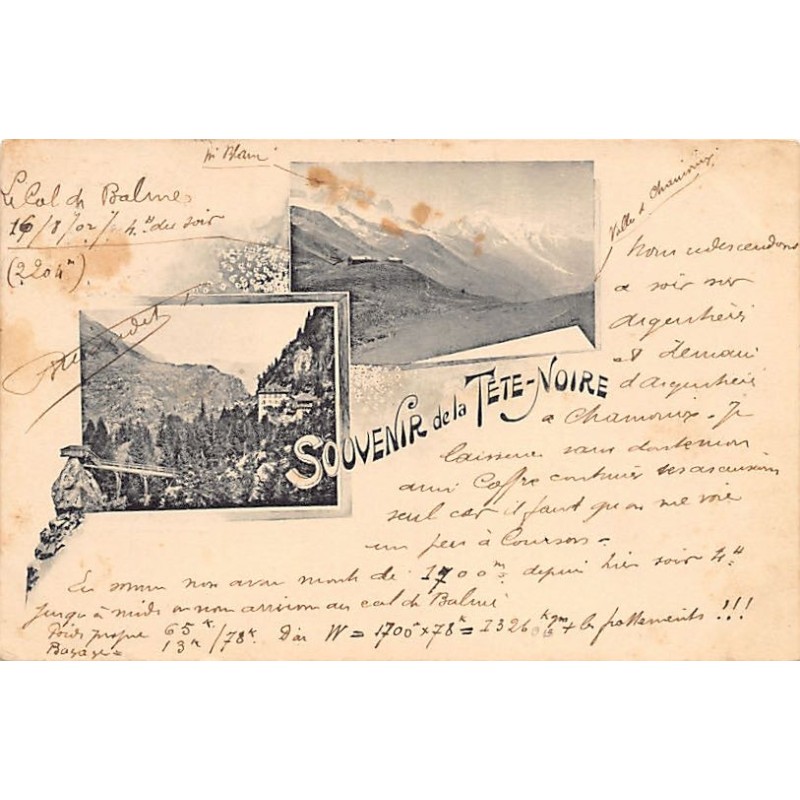 Mt Blanc
Le Col de Balme
16/8/02/ 4h du soir
(2204m)
Vallée de Chamonix
SOUVENIR de la TÊTE-NOIRE
Nous redescendons
ce soir sur
Argentière
et demain
d'Argentière
à Chamonix. Je
laisserai sans doute mon
ami Coffre continuer ses ascensions
seul car il faut qu'on me voie
un peu à Coursons.
En somme nous avons monté de 1700m depuis hier soir 4h
jusqu'à midi où nous arrivions au col de Balme
Poids propre 65k /78k D'où W = 1700 x 78k = 132600 kgm + les frottements !!!
Bagages = 13k